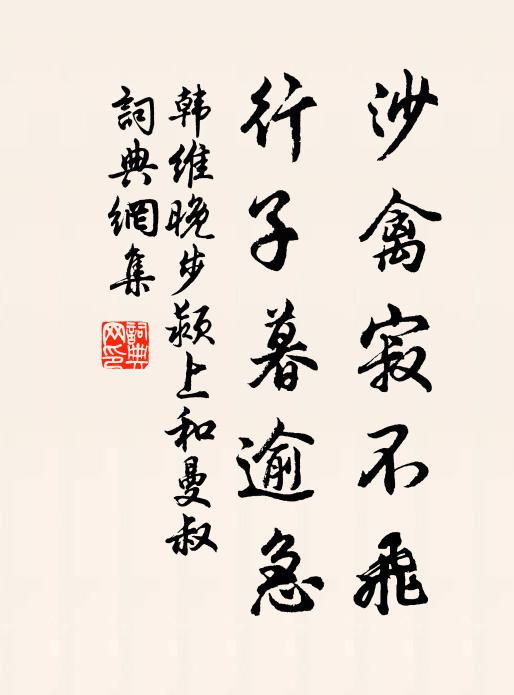 沙禽寂不飛
行子暮逾急
韩維晚步颍上和曼叔
詞典網集
詞典网印